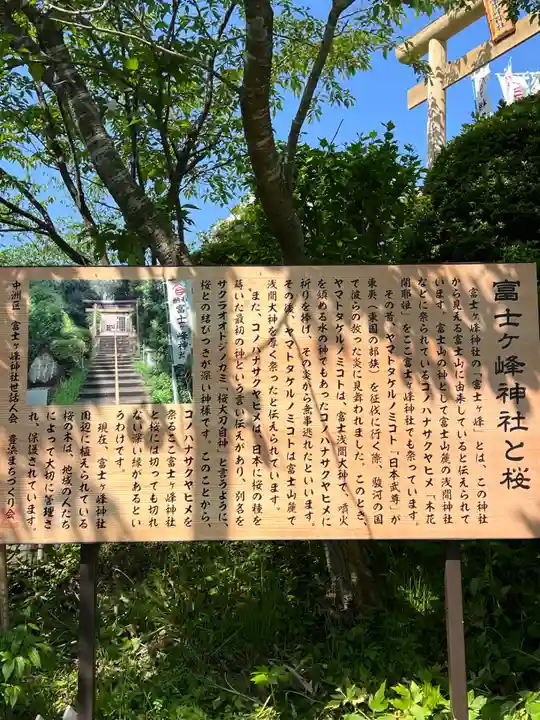 富士ヶ峰神社と桜
富士ヶ峰神社の「富士ヶ峰」とは、この神社
から見える富士山に由来していると伝えられて
います。富士山の神として富士山麓の浅間神社
などに祭られているコノハナサクヤヒメ「木花
開耶姫」をここ富士ヶ峰神社でも祭っています。
その昔、ヤマトタケルノミコト「日本武尊」が
東夷（東国の部族）を征伐に行く際、駿河の国
で彼らの放った炎に見舞われました。このとき、
ヤマトタケルノミコトは、富士浅間大神で、噴火
を鎮める水の神でもあったコノハナサクヤヒメに
祈りを捧げ、その炎から無事逃れたといいます。
その後、ヤマトタケルノミコトは富士山麓で
浅間大神を厚く祭ったと伝えられています。
また、コノハナサクヤヒメは、日本に桜の種を
蒔いた最初の神という言い伝えがあり、別名を
サクラオオトジノカミ「桜大刀自神」と言うように、
桜との結びつきが深い神様です。このことから、
コノハナサクヤヒメを
祭るここ富士ヶ峰神社
と桜には切っても切れ
ない深い縁があるとい
うわけです。
現在、富士ヶ峰神社
周辺に植えられている
桜の木は、地域の人たち
によって大切に管理さ
れ、保護されています。
中洲区 富士ヶ峰神社世話人会 豊浜まちづくり会